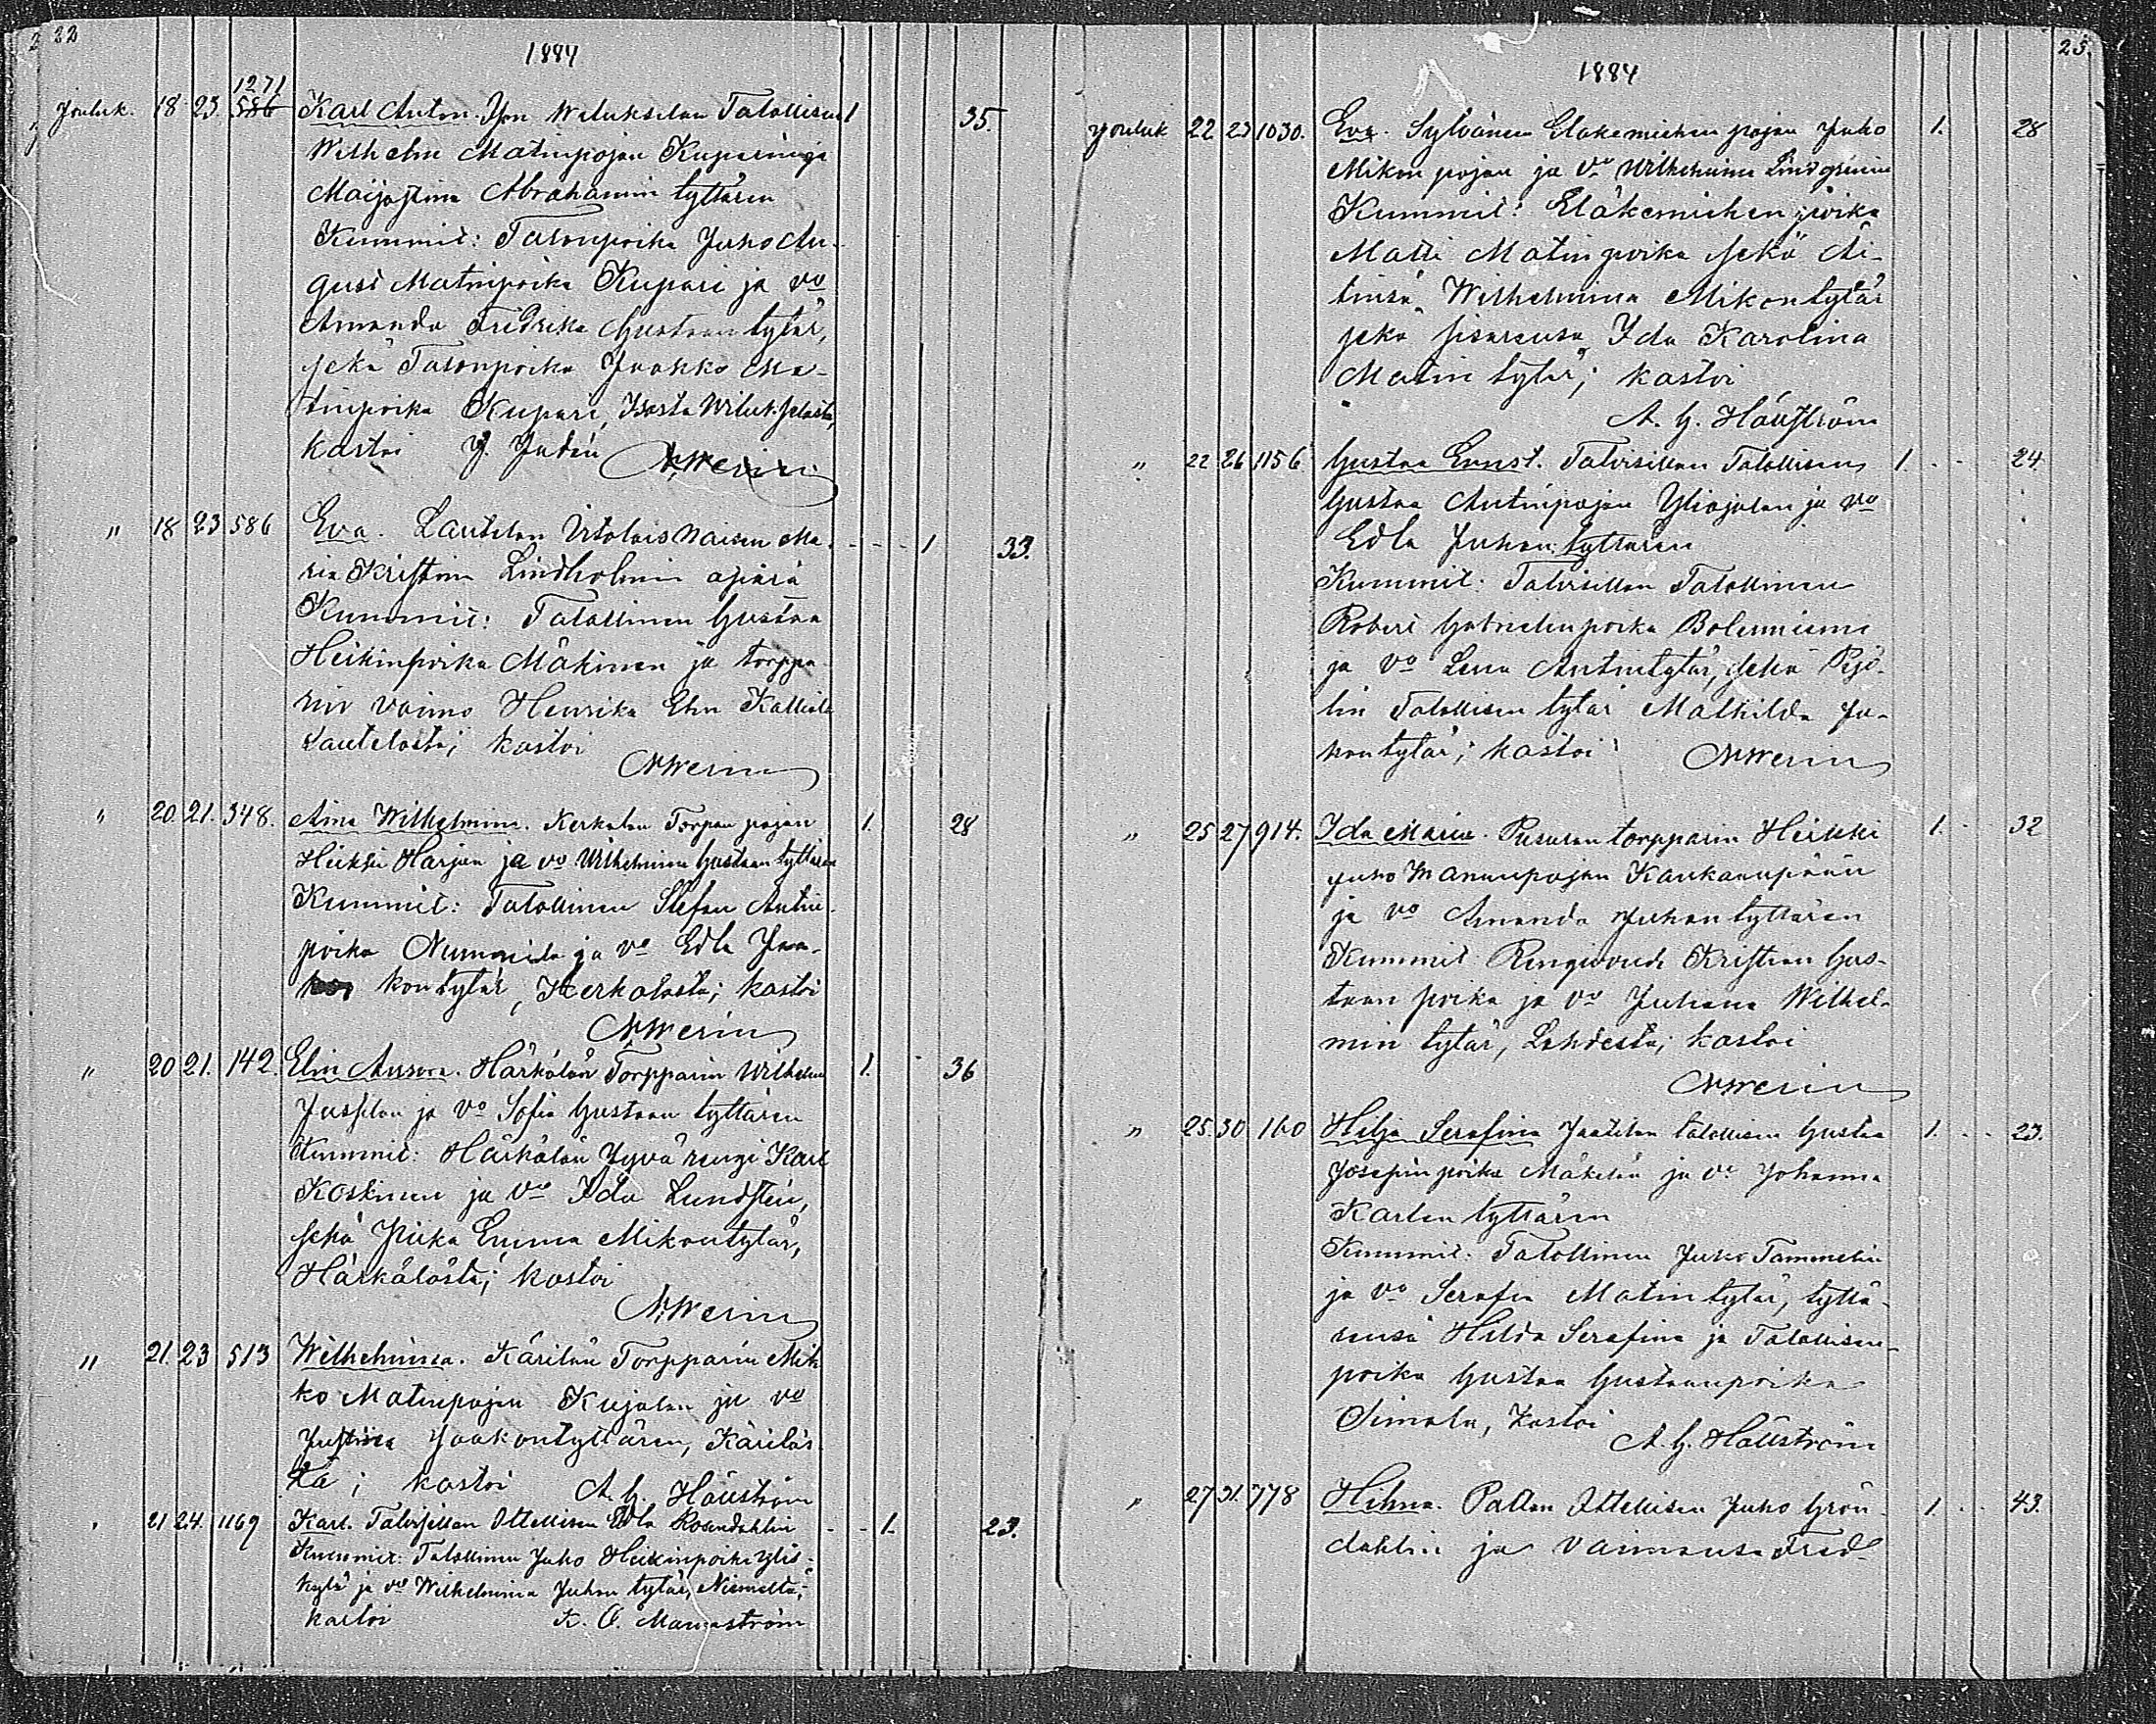 22
1884
1271
Jouluk. 18 23. 586 Karl Anton. Ison Wiluksilan Talollisen 1 35.
Wilhelm Matinpojan Kuparin ja
Maijastina Abrahamin tyttären
Kummit: Talonpoika Juho Au-
gust Matinpoika Kupari ja vo
Amanda Fredrika Gustaan tytär,
sekä Talonpoika Jaakko Ma-
tinpoika Kupari, Isosta Wiluk.
kastoi J. Judén
" 18 23 586 Eva. Lautelan Itsolais Naisen Ma- 1 33.
ria Kristina Lindholmin apärä
Kummit: Talollinen Gustaa
Heikinpoika Mäkinen ja torppa-
rin vaimo Henrika Elin Kalliola
Lautelasta; kastoi
NWerin
" 20. 21. 348. Aina Wilhelmina. Kerkolan Torpan pojan 1. 28
Heikki Harjun ja vo Wilhelmina Gustaan tyttären
Kummit: Talollinen Stefan Antin-
poika Nummila ja vo Edla Jaa-
kon tytär, Kerkolasta; kastoi
NWerin
" 20 21. 142. Elin Aurora. Härkälän Torpparin Wilhelm 1. 36
Jussilan ja vo Sofia Gustaan tyttären
Kummit: Härkälän Hyvä rengi Karl
Koskinen ja vo Ida Lundsten,
sekä Piika Emma Mikontytär,
Härkälästä; kastoi
NWerin
" 21. 23 513 Wilhelmina. Kärilän Torpparin Mik-
ko Matinpojan Kujalan ja vo
Justina Jaakontyttären, Käriläs-
tä; kastoi A. G. Hällström
" 21 24. 1169 Karl. Talvisillan Ittellisen Edla Rosendahlin 1. 23.
Kummit: Talollinen Juho Heikinpoika Ylis-
kylä ja vo Wilhelmina Juhon tytär, Niemeltä;
kastoi K. O. Mannström
23.
1884
Jouluk 22 23 1030. Eva. Sylvänen Eläkemiehen pojan Juho 1. 28
Mikon pojan ja vo Wilhelmina Lindgrenin
Kummit: Eläkemiehen poika
Matti Matinpoika sekä Äi-
tinsä Wilhelmina Mikontytär
sekä sisarensa Ida Karolina
Matin tytär; kastoi
A. G. Hällström
" 22 26 1156 Gustaa Ernst. Talvisillan Talollisen 1. 24.
Gustaa Antinpojan Yliojalan ja vo
Edla Juhan tyttären
Kummit: Talvisillan Talollinen
Robert Gabrielinpoika
ja vo Lena Antintytär, sekä
lin Talollisen tytär Mathilda Ja-
kontytär; kastoi NWerin
" 25 27 914. Ida Maria. Pusulan torpparin Heikki 1. 32
Juho Mananpojan Kaukaanpään
ja vo Amanda Juhan tyttären
Kummit Kristian Gus-
taan poika ja vo Juliana Wilhel-
min tytär, Lahdesta; kastoi
NWerin
" 25. 30. 160 Hilja Serafina Jaatilan talollisen Gustaa 1. 23.
Josefin poika Mäkelän ja vo Johanna
Karlen tyttären
Kummit. Talollinen Juho Tammelin
ja vo Serafia Matin tytär, tyttä-
rensä Hilda Serafina ja Talollisen-
poika Gustaa Gustaanpoika
Simola, kastoi A. G. Hällström
" 27 31. 778 Hilma. Paltan Ittellisen Juho Grön- 1. 43.
dahlin ja vaimonsa Fred-